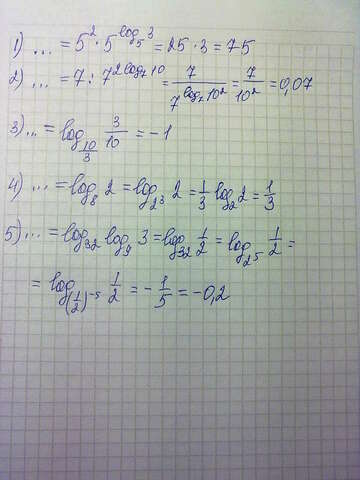 1) ... = 5² · 5^(log₅ 3) = 25 · 3 = 75
2) ... = 7 : 7^(2 log₇ 10) = 7 / 7^(log₇ 10²) = 7 / 10² = 0,07
3) ... = log_(10/3) 3/10 = -1
4) ... = log₈ 2 = log_(2³) 2 = 1/3 log₂ 2 = 1/3
5) ... = log₃₂ log₉ 3 = log₃₂ 1/2 = log_(2⁵) 1/2 =
= log_((1/2)⁻⁵) 1/2 = - 1/5 = -0,2